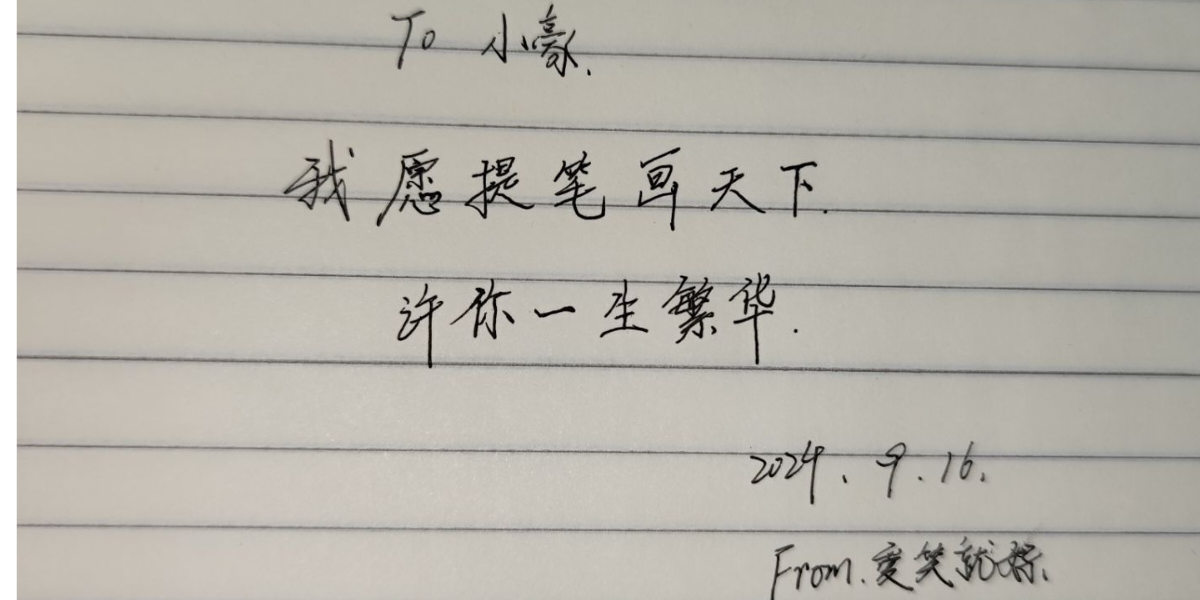 To 小豪.
我愿提笔画天下.
许你一生繁华.
2024.9.16.
From.爱笑就好.